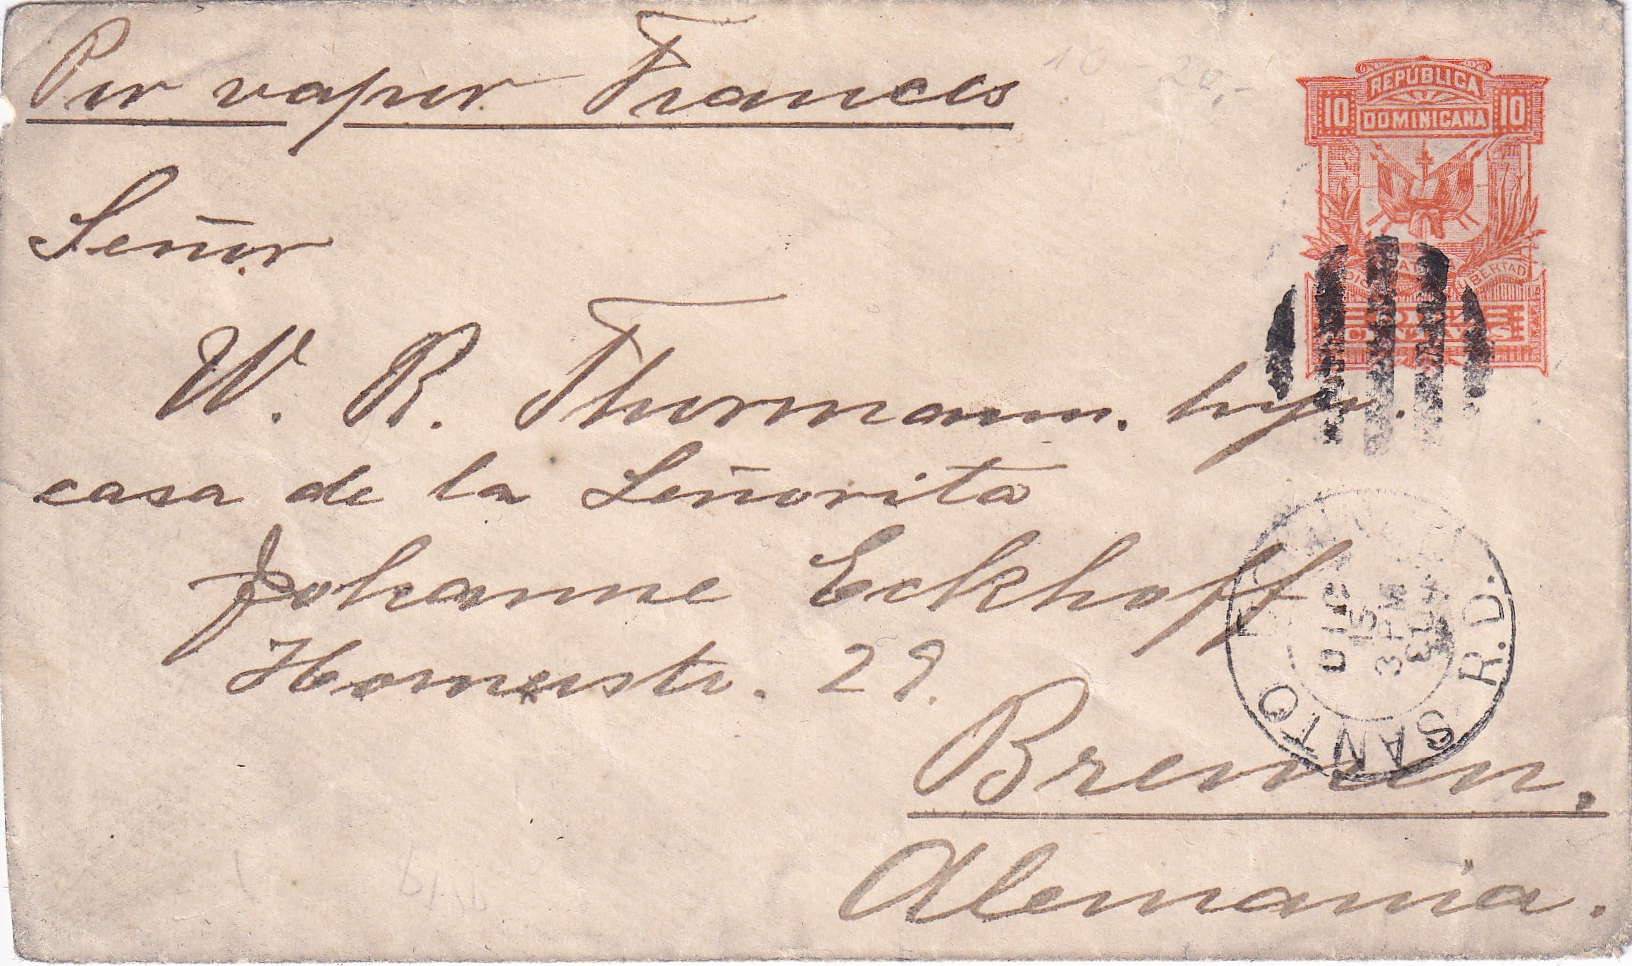 Per vapor Frances
10 - 20,-
REPÚBLICA
10 DOMINICANA 10
LIBERTAD
CENTAVOS
Señor
W. R. Thormann. hijo.
casa de la Señorita
Johanne Eckhoff
Hornerstr. 29.
Bremen.
Alemania.
SANTO R.D.
DIC
15
3 PM